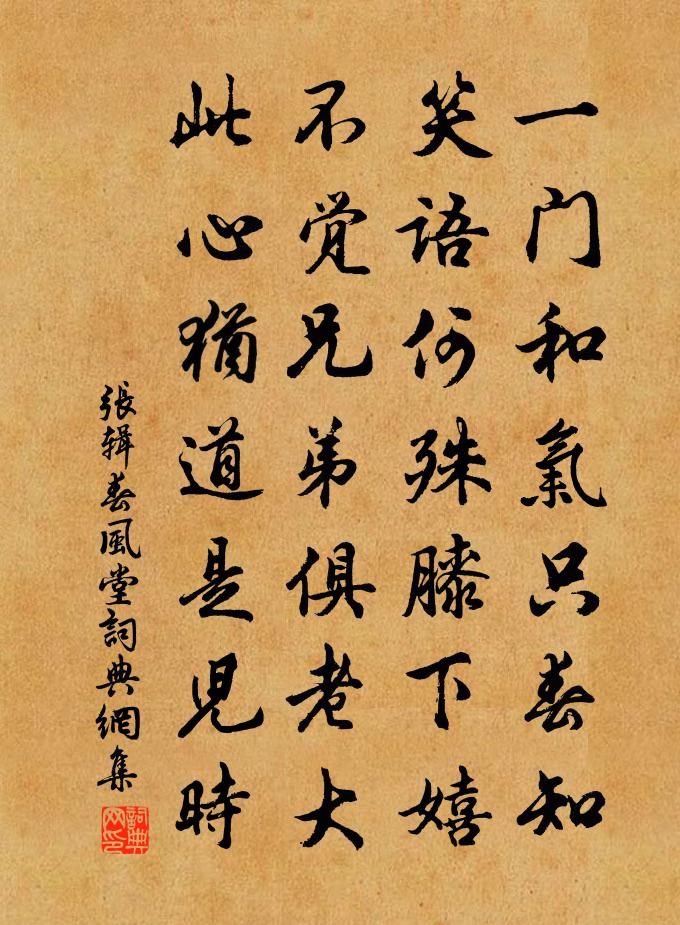 一门和氣只春知
笑语何殊膝下嬉
不觉兄弟俱老大
此心猶道是児時
張辑春風堂詞典網集
詞典
网印